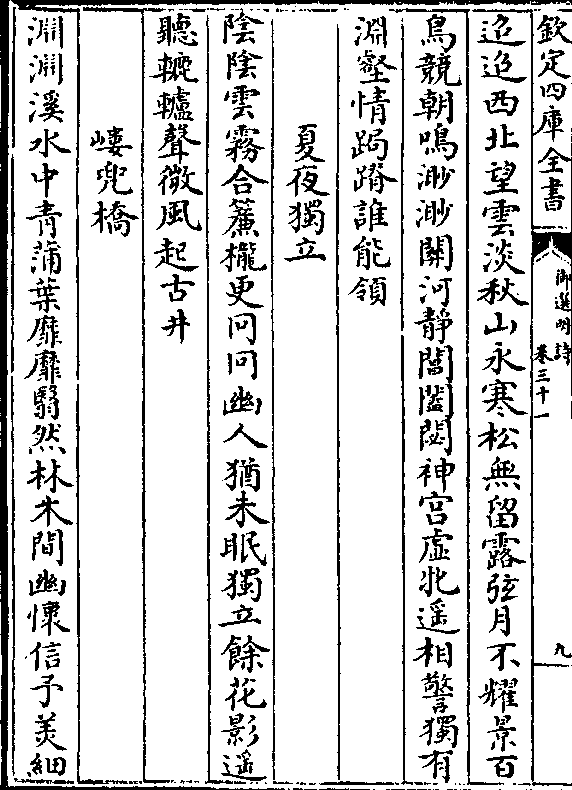 欽定四庫全書
御選明詩
卷三十一
九
迢迢西北望雲淡秋山永寒松無留露弦月不耀景百
鳥競朝鳴渺渺關河靜閶闔閟神宫虛牝遥相警獨有
淵壑情跼蹐誰能領
夏夜獨立
陰陰雲霧合簾櫳更冋冋幽人猶未眠獨立餘花影遥
聽轆轤聲微風起古井
嶁兜橋
淵淵溪水中青蒲葉靡靡翳然林木間幽懷信予美細